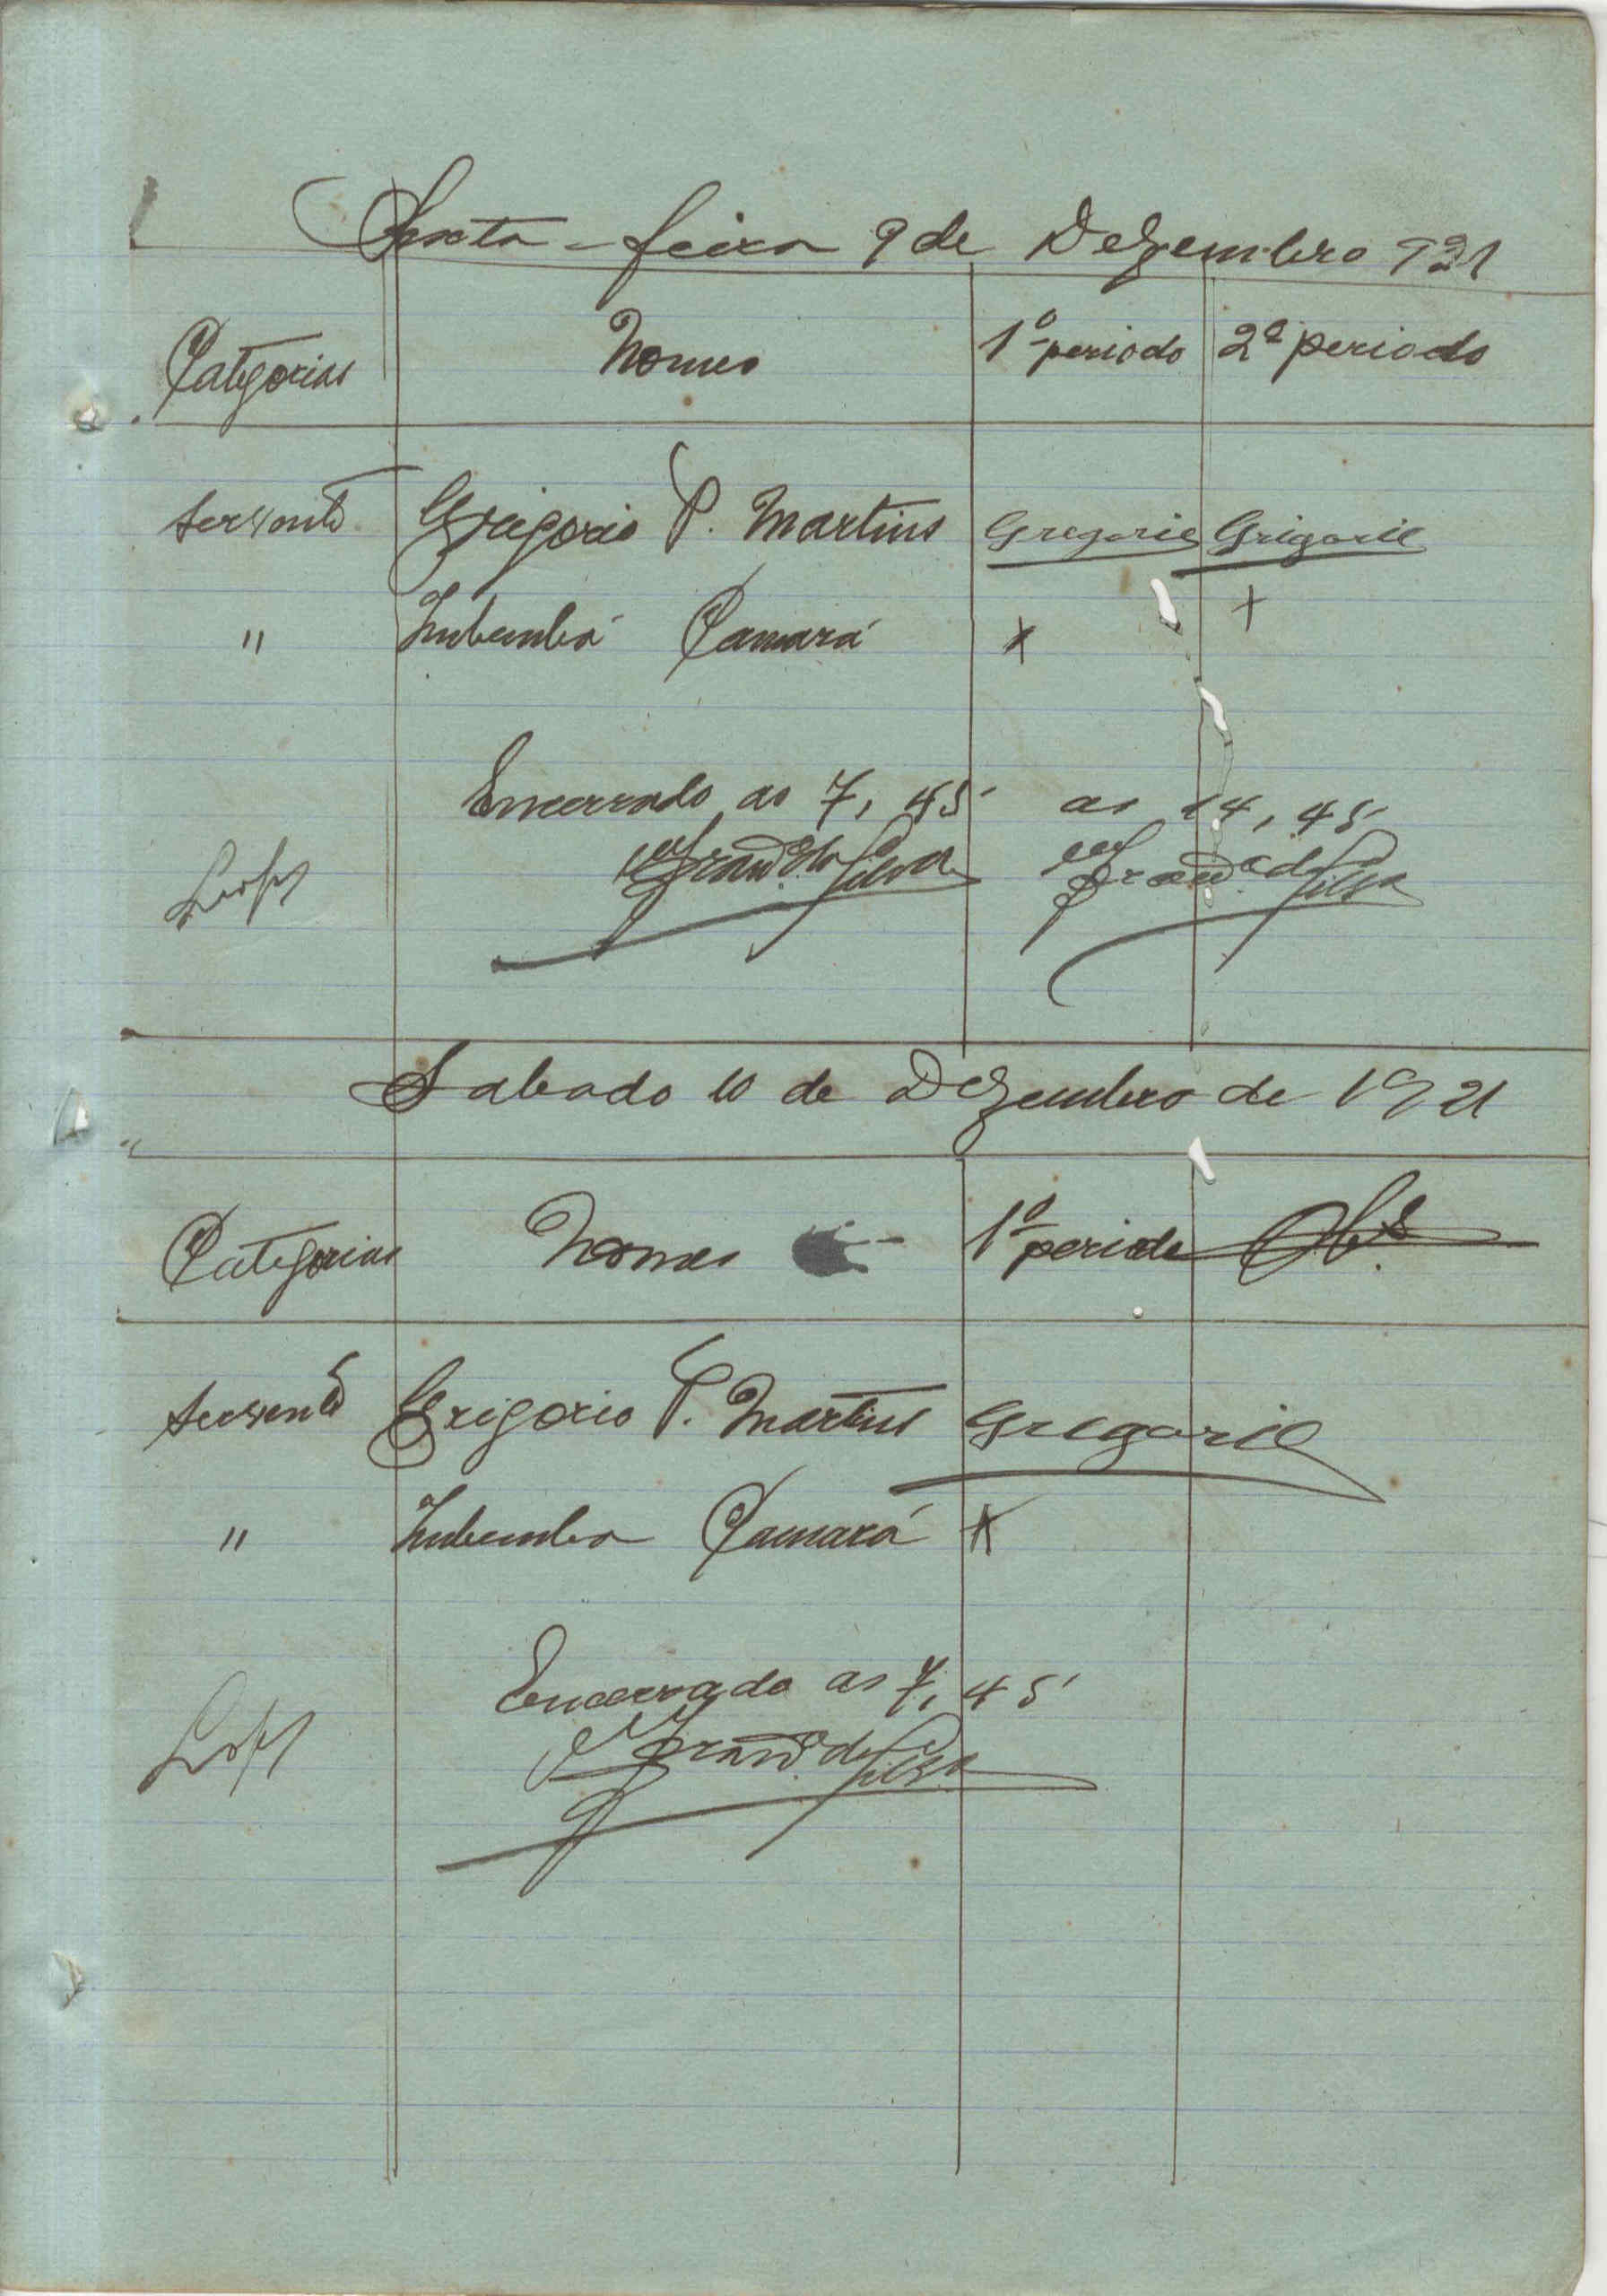 Sexta-feira 9 de Dezembro 921
Categorias Nomes 1º periodo 2º periodo
Servente Grigorio P. Martins Gregorio Grigorio
" Camará x +
Encerrado as 7,45 as 14,45
da Silva da Silva
Sabado 10 de Dezembro de 1921
Categorias Nomes 1º periodo Obs
Servente Grigorio P. Martins Gregorio
" Camará x
Encerrado as 7,45
da Silva